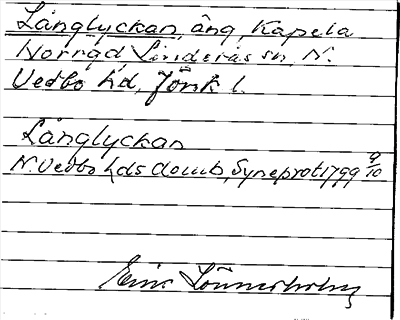 Långlyckan, äng, Kapela
Norrgd Linderås sn, N.
Vedbo hd, Jönk l.
Långlyckan
N. Vedbo hds domb, Syneprot 1799 9/10
Eric Lönnerholm